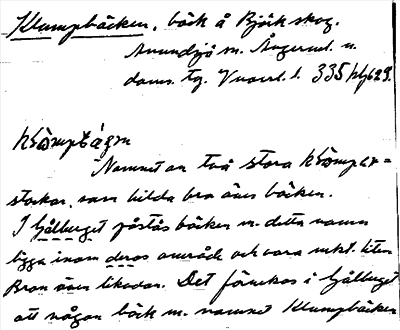 Klumpbäcken, bäck å Björkskog.
Anundsjö sn. Ångerml. n.
doms. tg. Vnorrl. l. 335
Namnet av två stora
stockar, som bilda bro över bäcken.
I Gålberget påstås bäcken m. detta namn
ligga inom deras område och vara mkt. liten
Bron över likadan. Det förnekas i Gålberget
att någon bäck m. namnet Klumpbäcken